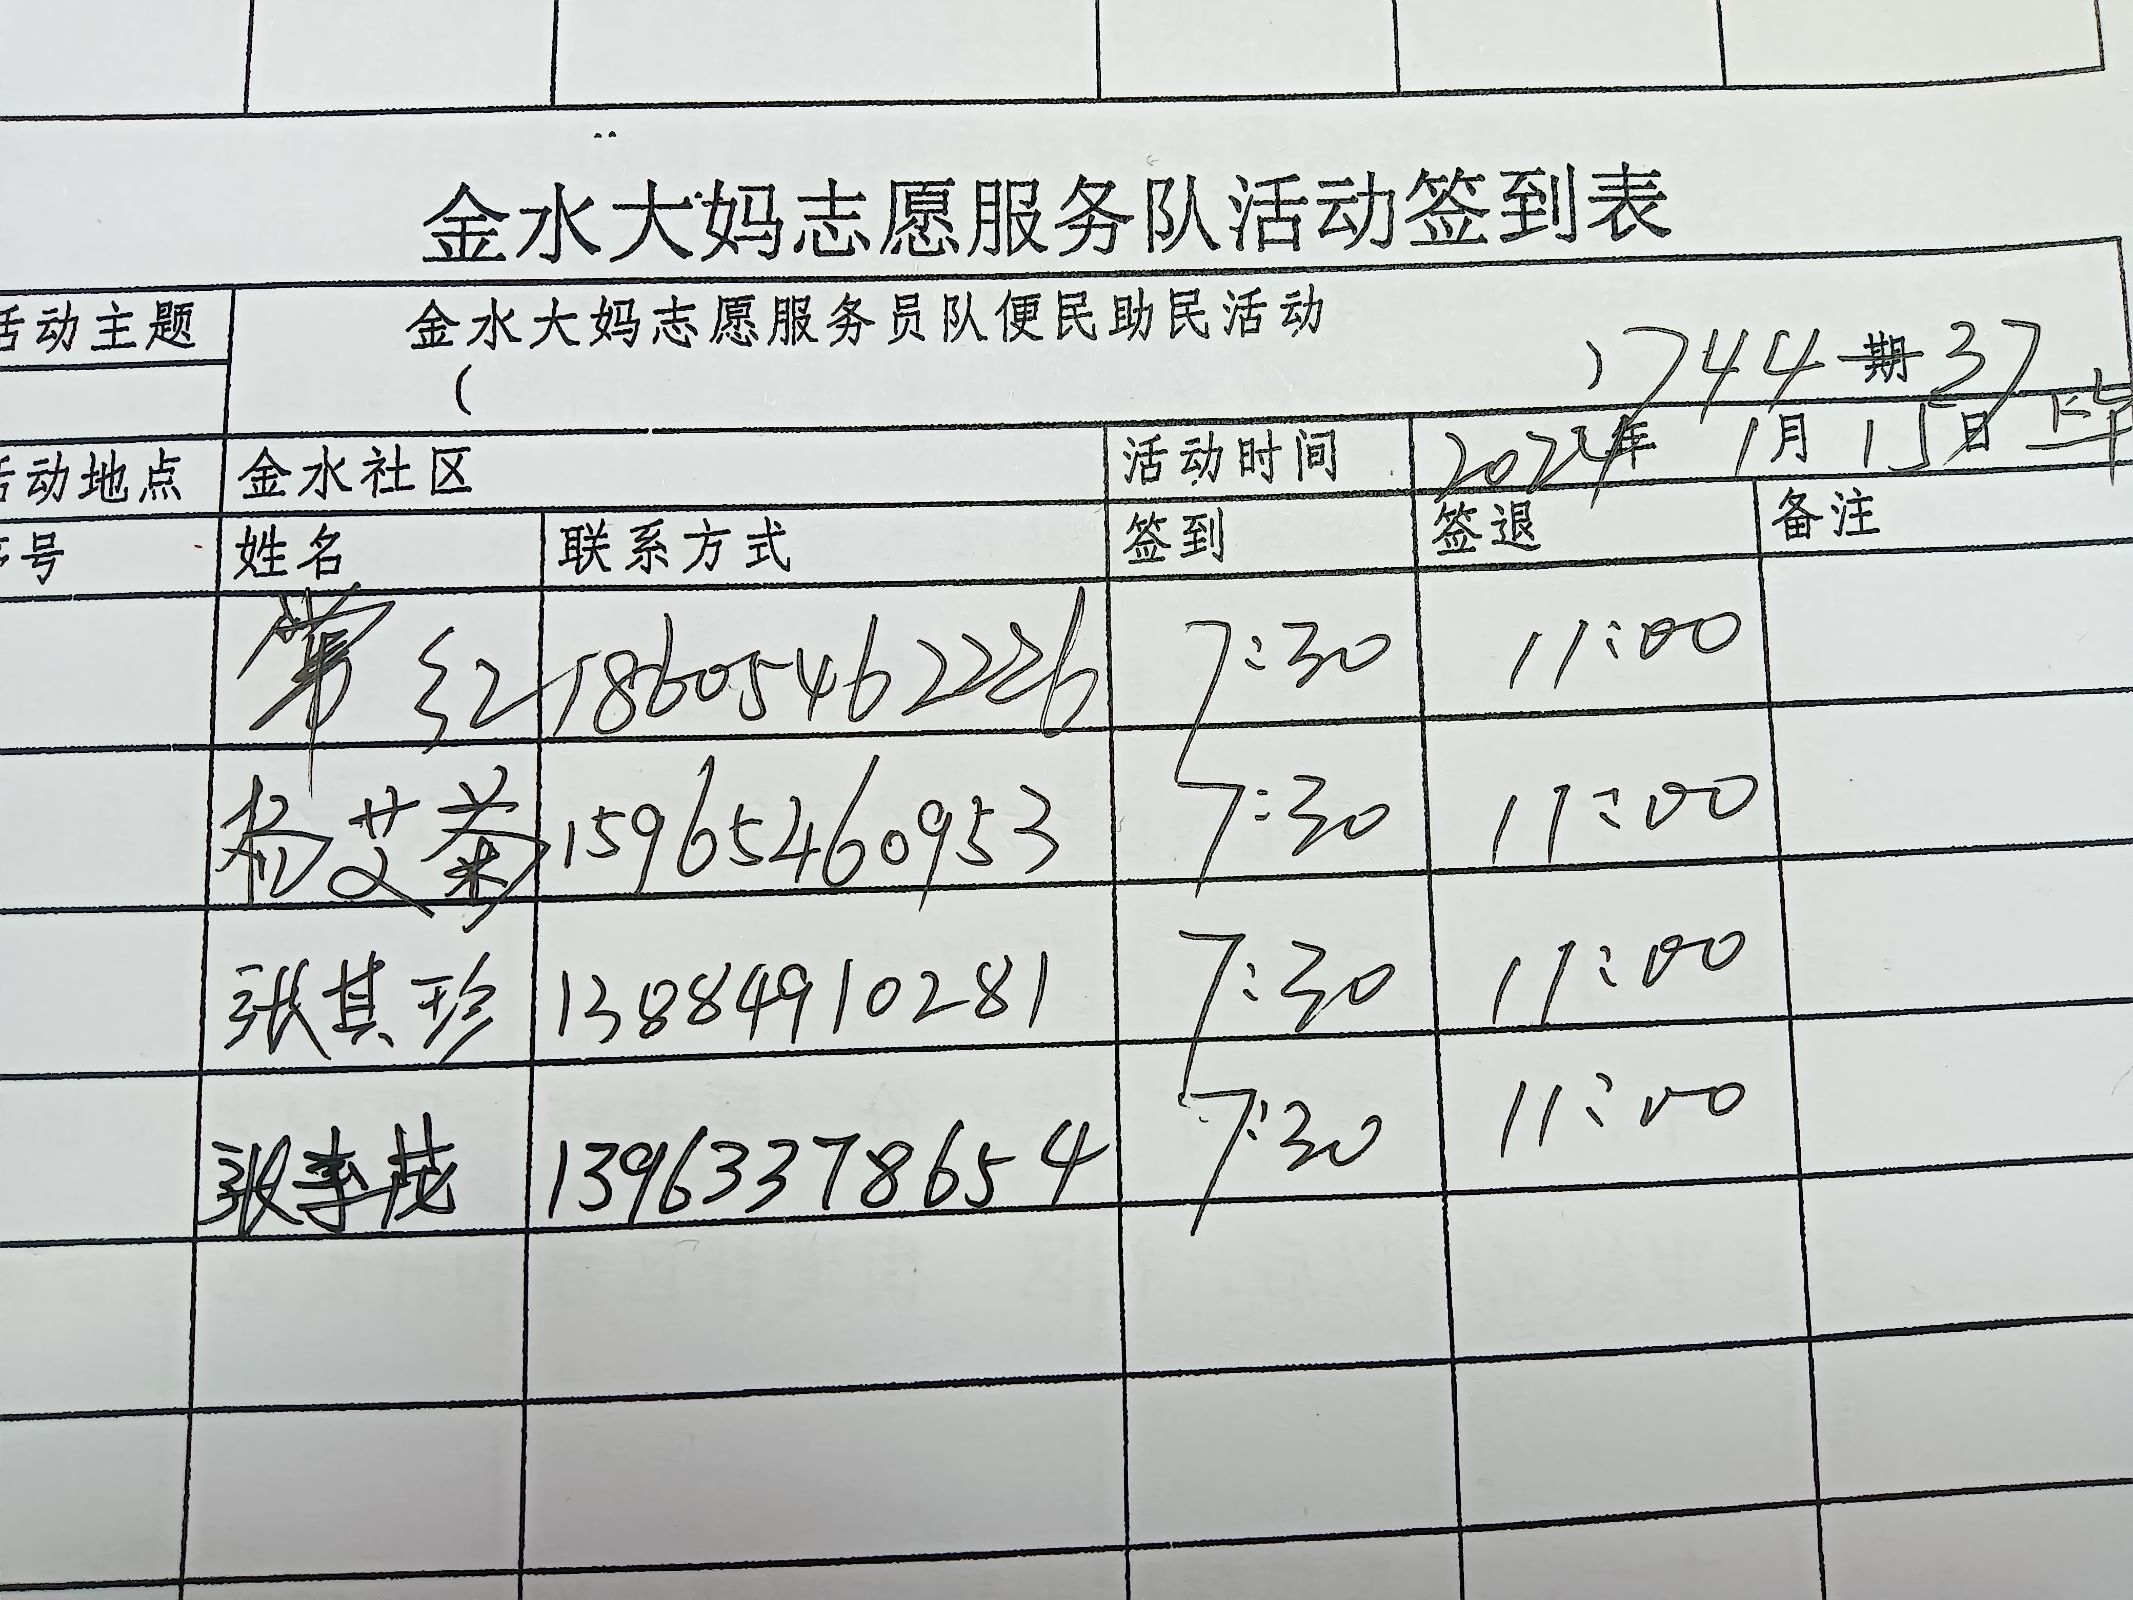 金水大妈志愿服务队活动签到表
活动主题 金水大妈志愿服务员队便民助民活动
( ) 744期 37
活动地点 金水社区 活动时间 2024年 1月15日 上午
序号 姓名 联系方式 签到 签退 备注
红 18605462226 7:30 11:00
杨艾菊 15965460953 7:30 11:00
张其珍 13884910281 7:30 11:00
张李茂 13963378654 7:30 11:00